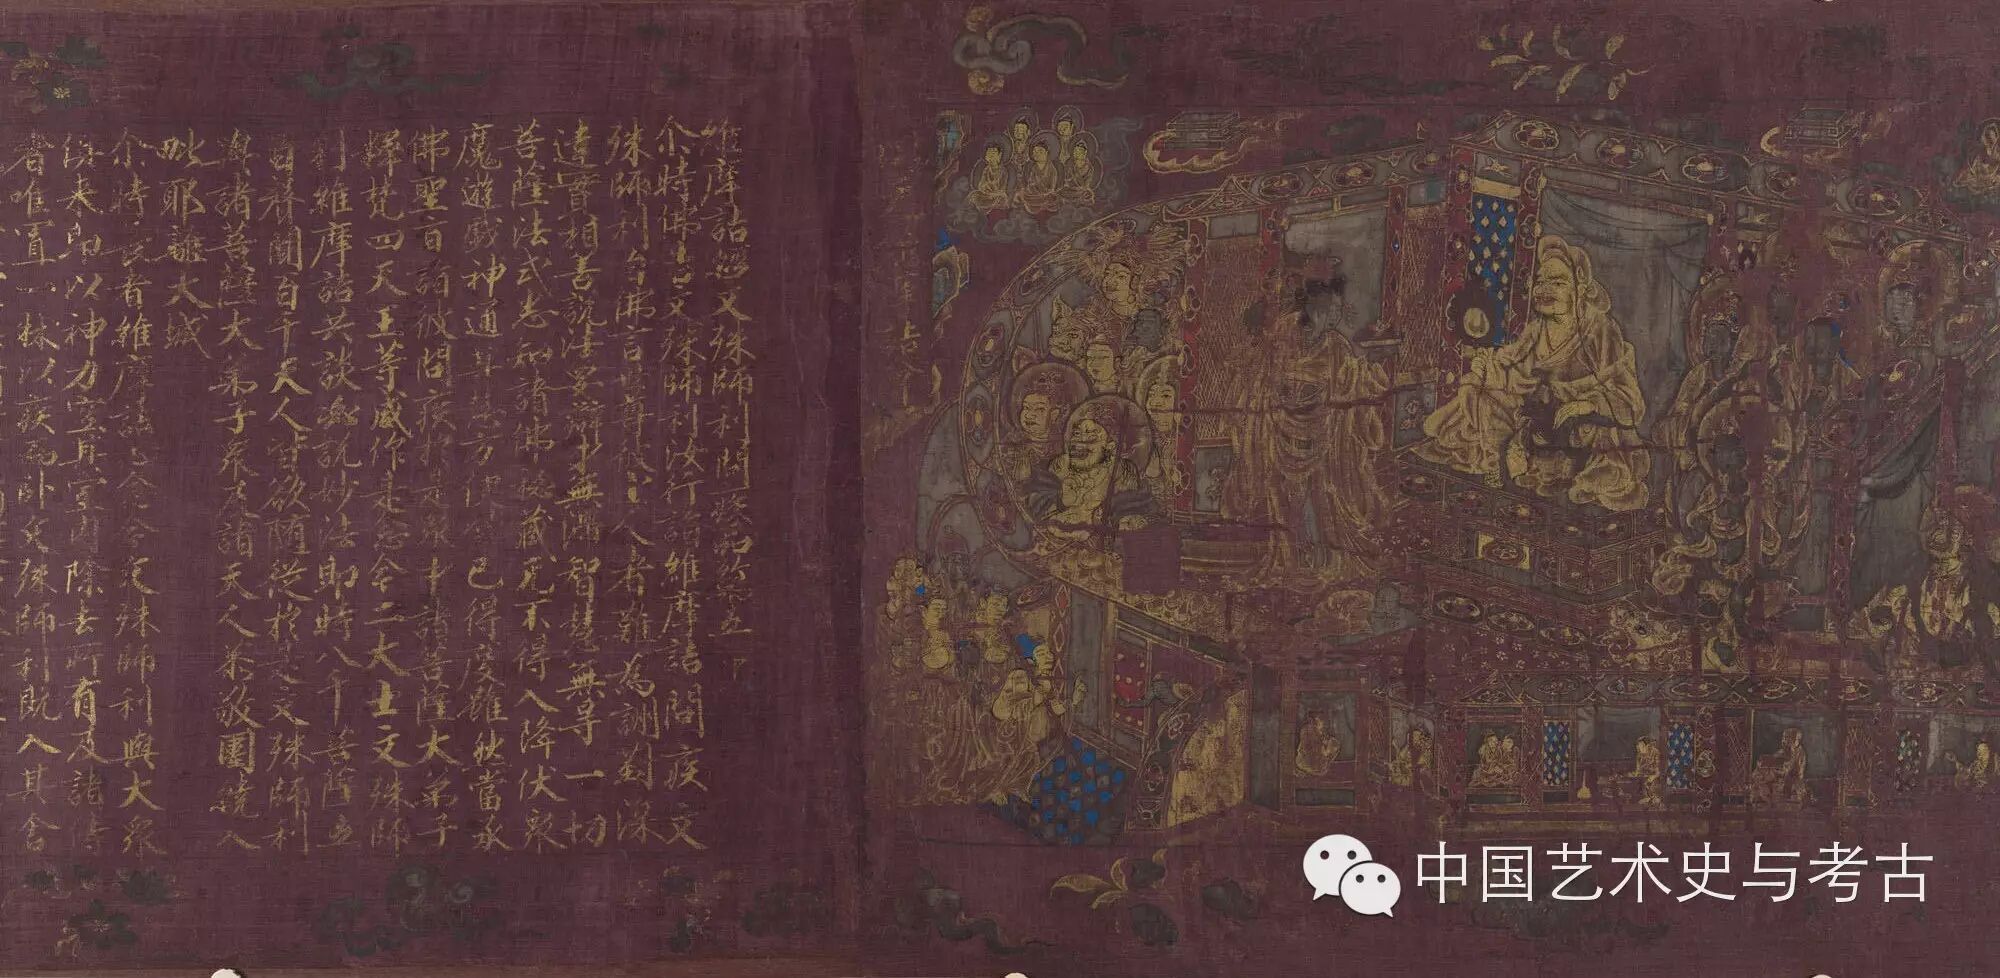 維摩詰經文殊師利問疾品第五
尒時佛告文殊師利汝行詣維摩詰問疾文
殊師利白佛言世尊彼上人者難為詶對深
達實相善說法要辯才無滯智慧無㝵一切
菩薩法式悉知諸佛秘藏無不得入降伏眾
魔遊戲神通其慧方便皆已得度雖然當承
佛聖旨詣彼問疾於是眾中諸菩薩大弟子
釋梵四天王等咸作是念今二大士文殊師
利維摩詰共談必說妙法即時八千菩薩五
百聲聞百千天人皆欲隨從於是文殊師利
與諸菩薩大弟子眾及諸天人恭敬圍遶入
毗耶離大城
尒時長者維摩詰心念今文殊師利與大眾
俱來即以神力空其室內除去所有及諸侍
者唯置一牀以疾而卧文殊師利既入其舍
中国艺术史与考古